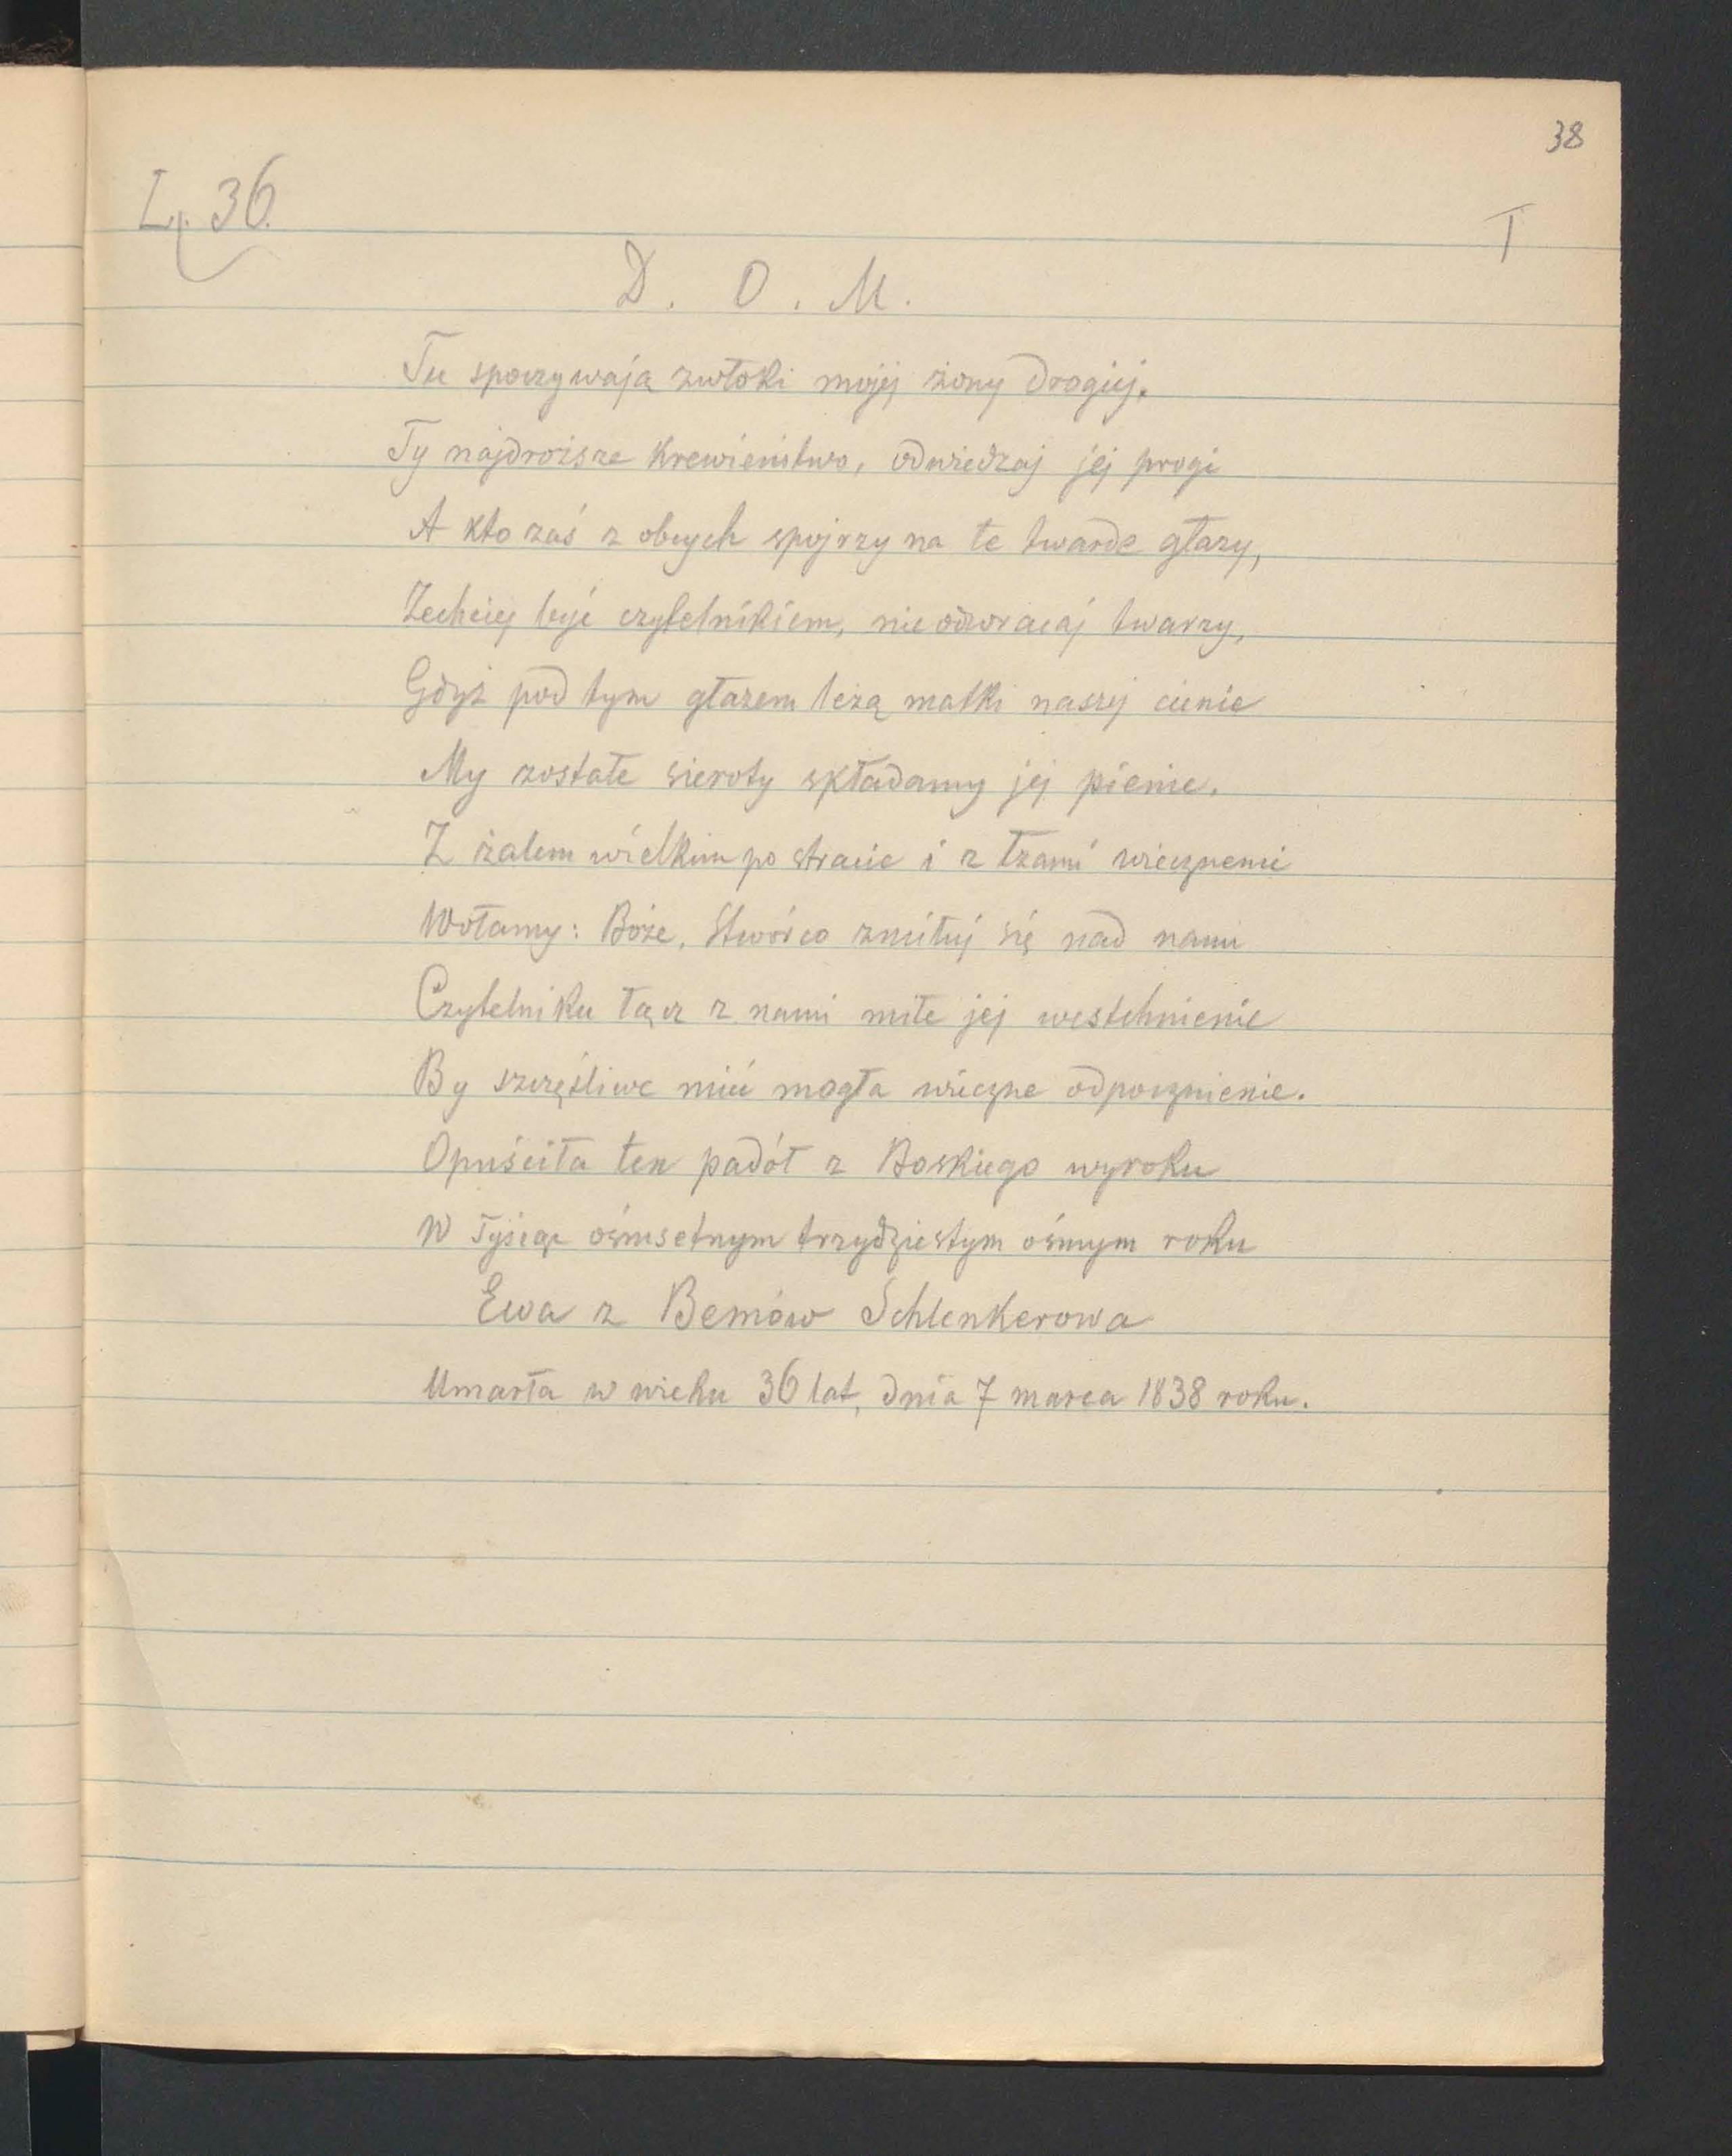 38
L. 36.
T
D. O. M.
Tu spoczywają zwłoki mojej żony drogiej.
Ty najdroższe krewieństwo, odwiedzaj jej progi
A kto zaś z obcych spojrzy na te twarde głazy,
Zechciej być czytelnikiem, nie odwracaj twarzy,
Gdyż pod tym głazem leżą matki naszej cienie
My zostałe sieroty składamy jej pienie.
Z żalem wielkim po stracie i z łzami wiecznemi
Wołamy: Boże, Stwórco zmiłuj się nad nami
Czytelniku łącz z nami miłe jej westchnienie
By szczęśliwe mieć mogła wieczne odpocznienie.
Opuściła ten padół z Boskiego wyroku
W Tysiąc ośmsetnym trzydziestym ósmym roku
Ewa z Bemów Schlenkerowa
Umarła w wieku 36 lat, dnia 7 marca 1838 roku.